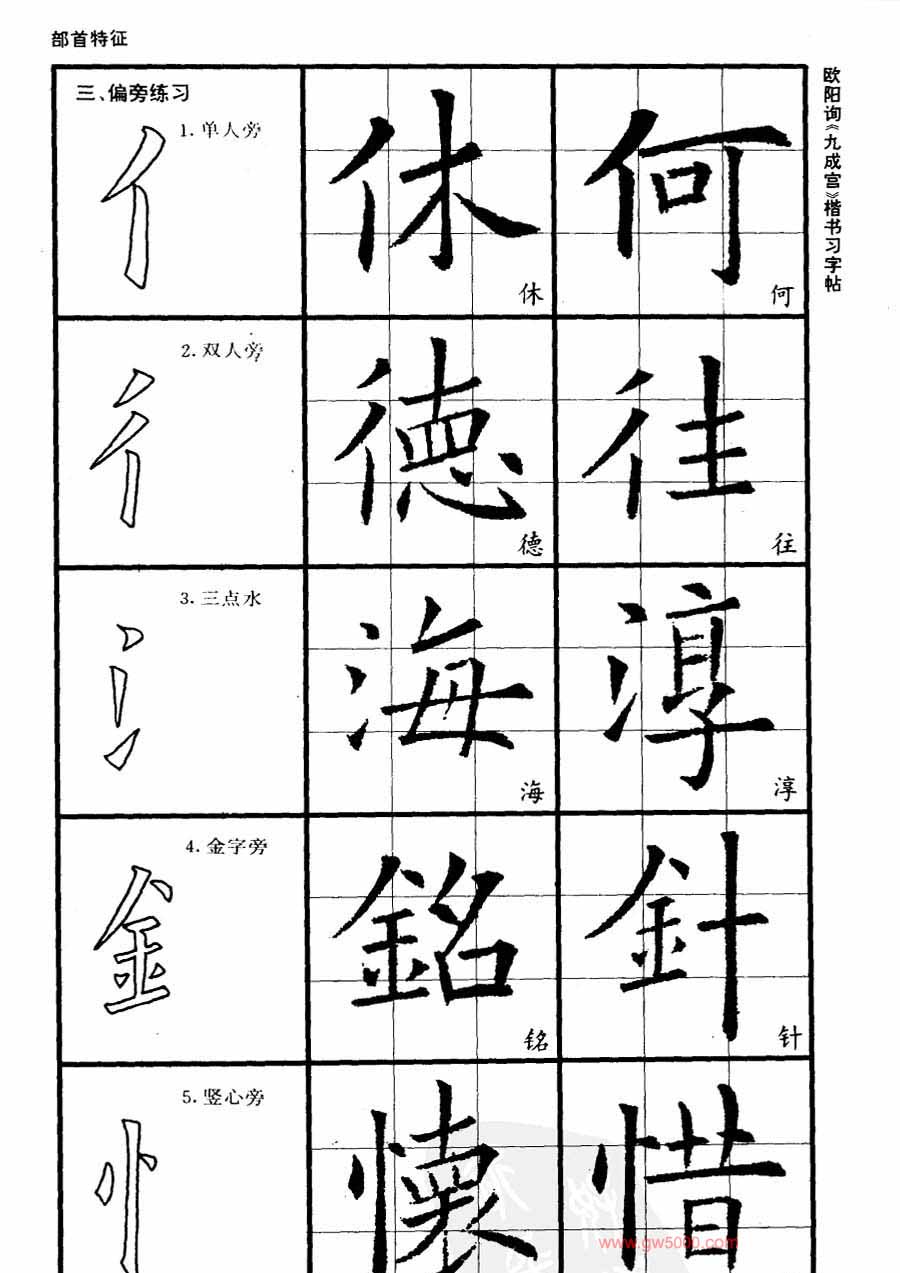 部首特征
欧阳询《九成宫》楷书习字帖
三、偏旁练习
1. 单人旁
亻
休
休
何
何
2. 双人旁
彳
德
德
往
往
3. 三点水
氵
海
海
淳
淳
4. 金字旁
釒
銘
铭
針
针
5. 竖心旁
忄
懷
惜
www.gw5000.com